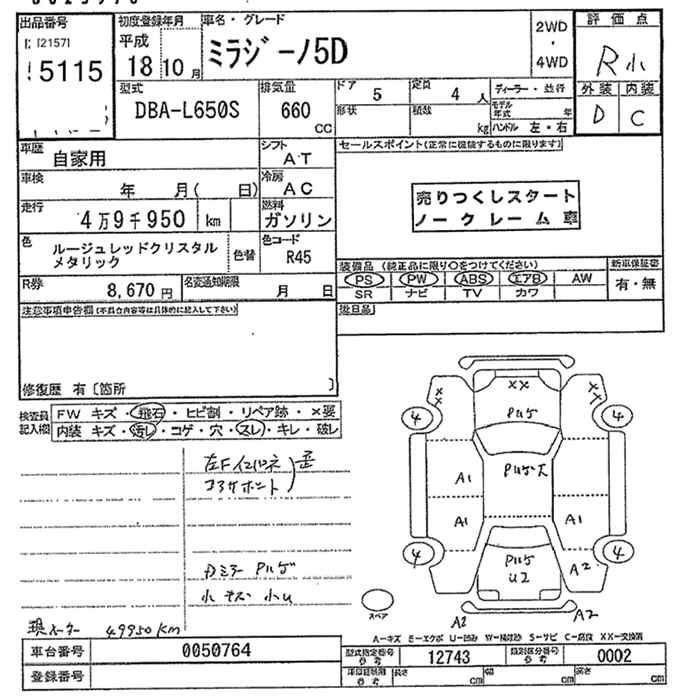 出品番号
5115
初度登録年月
平成
18 10 月
車名・グレード
ミラジーノ5D
2WD
・
4WD
評価点
R小
外装 内装
D C
型式
DBA-L650S
排気量
660
CC
ドア
5
定員
4 人
形状
積数
kg
ディーラー・並行
モデル年式 年
ハンドル 左・右
車歴
自家用
シフト
AT
車検
年 月( 日)
冷房
AC
走行
4万9千950 km
燃料
ガソリン
色
ルージュレッドクリスタル
メタリック
色替
色コード
R45
R券
8,670 円
名変通知期限
月 日
セールスポイント(正常に機能するものに限ります)
売りつくしスタート
ノークレーム車
装備品 (純正品に限り○をつけてください)
PS PW ABS エアB AW
SR ナビ TV カワ
新車保証書
有・無
後日品
注意事項申告欄(不具合内容等は具体的に記入して下さい)
修復歴 有〔箇所 〕
検査員
記入欄
FW キズ・飛石・ヒビ割・リペア跡・×要
内装 キズ・汚レ・コゲ・穴・スレ・キレ・破レ
左Fインパネ
コアサポート
歪
現メーター 49950KM
XX
XX
XX
Pハゲ
4
4
Pハゲ大
A1
A1
A1
4
4
Pハゲ
U2
A2
A2
A2
スペア
A－キズ E－エクボ U－凹み W－補修跡 S－サビ C－腐食 XX－交換済
車台番号
0050764
登録番号
型式指定番号
参考
12743
類別区分番号
参考
0002
長さ
cm
幅
cm
高さ
cm